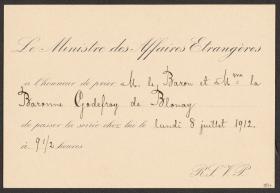 Le Ministre des Affaires Etrangères
a l'honneur de prier M. le Baron et Mme la
Baronne Godefroy de Blonay
de passer la soirée chez lui le lundi 8 juillet 1912.
à 9 1/2 heures
R.S.V.P.